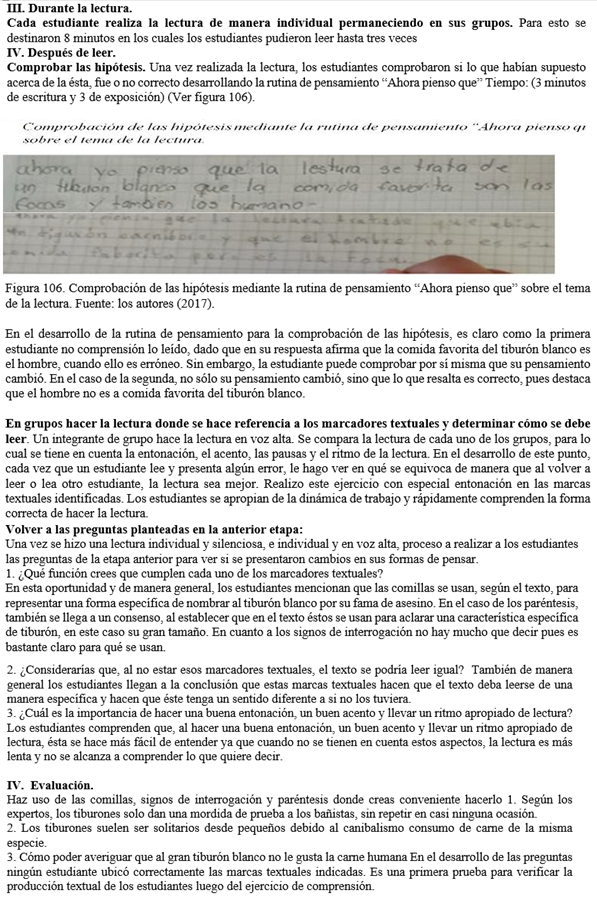 III. Durante la lectura.
Cada estudiante realiza la lectura de manera individual permaneciendo en sus grupos. Para esto se
destinaron 8 minutos en los cuales los estudiantes pudieron leer hasta tres veces
IV. Después de leer.
Comprobar las hipótesis. Una vez realizada la lectura, los estudiantes comprobaron si lo que habían supuesto
acerca de la ésta, fue o no correcto desarrollando la rutina de pensamiento “Ahora pienso que” Tiempo: (3 minutos
de escritura y 3 de exposición) (Ver figura 106).
Comprobación de las hipótesis mediante la rutina de pensamiento “Ahora pienso qu
sobre el tema de la lectura.
ahora yo pienso que la lectura se trata de
un tiburon blanco que la comida favorita son las
focas y tambien los humano-
que la lectura
y que el hombre no es su
Figura 106. Comprobación de las hipótesis mediante la rutina de pensamiento “Ahora pienso que” sobre el tema
de la lectura. Fuente: los autores (2017).
En el desarrollo de la rutina de pensamiento para la comprobación de las hipótesis, es claro como la primera
estudiante no comprensión lo leído, dado que en su respuesta afirma que la comida favorita del tiburón blanco es
el hombre, cuando ello es erróneo. Sin embargo, la estudiante puede comprobar por sí misma que su pensamiento
cambió. En el caso de la segunda, no sólo su pensamiento cambió, sino que lo que resalta es correcto, pues destaca
que el hombre no es a comida favorita del tiburón blanco.
En grupos hacer la lectura donde se hace referencia a los marcadores textuales y determinar cómo se debe
leer. Un integrante de grupo hace la lectura en voz alta. Se compara la lectura de cada uno de los grupos, para lo
cual se tiene en cuenta la entonación, el acento, las pausas y el ritmo de la lectura. En el desarrollo de este punto,
cada vez que un estudiante lee y presenta algún error, le hago ver en qué se equivoca de manera que al volver a
leer o lea otro estudiante, la lectura sea mejor. Realizo este ejercicio con especial entonación en las marcas
textuales identificadas. Los estudiantes se apropian de la dinámica de trabajo y rápidamente comprenden la forma
correcta de hacer la lectura.
Volver a las preguntas planteadas en la anterior etapa:
Una vez se hizo una lectura individual y silenciosa, e individual y en voz alta, proceso a realizar a los estudiantes
las preguntas de la etapa anterior para ver si se presentaron cambios en sus formas de pensar.
1. ¿Qué función crees que cumplen cada uno de los marcadores textuales?
En esta oportunidad y de manera general, los estudiantes mencionan que las comillas se usan, según el texto, para
representar una forma específica de nombrar al tiburón blanco por su fama de asesino. En el caso de los paréntesis,
también se llega a un consenso, al establecer que en el texto éstos se usan para aclarar una característica específica
de tiburón, en este caso su gran tamaño. En cuanto a los signos de interrogación no hay mucho que decir pues es
bastante claro para qué se usan.
2. ¿Considerarías que, al no estar esos marcadores textuales, el texto se podría leer igual? También de manera
general los estudiantes llegan a la conclusión que estas marcas textuales hacen que el texto deba leerse de una
manera específica y hacen que éste tenga un sentido diferente a si no los tuviera.
3. ¿Cuál es la importancia de hacer una buena entonación, un buen acento y llevar un ritmo apropiado de lectura?
Los estudiantes comprenden que, al hacer una buena entonación, un buen acento y llevar un ritmo apropiado de
lectura, ésta se hace más fácil de entender ya que cuando no se tienen en cuenta estos aspectos, la lectura es más
lenta y no se alcanza a comprender lo que quiere decir.
IV. Evaluación.
Haz uso de las comillas, signos de interrogación y paréntesis donde creas conveniente hacerlo 1. Según los
expertos, los tiburones solo dan una mordida de prueba a los bañistas, sin repetir en casi ninguna ocasión.
2. Los tiburones suelen ser solitarios desde pequeños debido al canibalismo consumo de carne de la misma
especie.
3. Cómo poder averiguar que al gran tiburón blanco no le gusta la carne humana En el desarrollo de las preguntas
ningún estudiante ubicó correctamente las marcas textuales indicadas. Es una primera prueba para verificar la
producción textual de los estudiantes luego del ejercicio de comprensión.